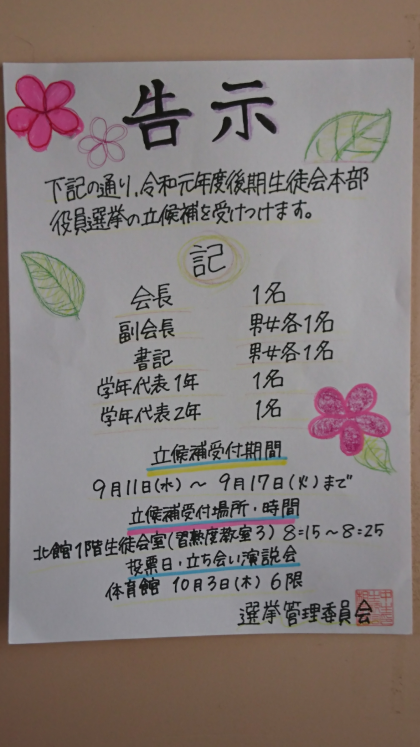 告示
下記の通り、令和元年度後期生徒会本部
役員選挙の立候補を受けつけます。
記
会長 1名
副会長 男女各1名
書記 男女各1名
学年代表1年 1名
学年代表2年 1名
立候補受付期間
9月11日(水) ～ 9月17日(火)まで
立候補受付場所・時間
北館1階生徒会室(習熟度教室3) 8:15～8:25
投票日・立ち会い演説会
体育館 10月3日(木) 6限
選挙管理委員会